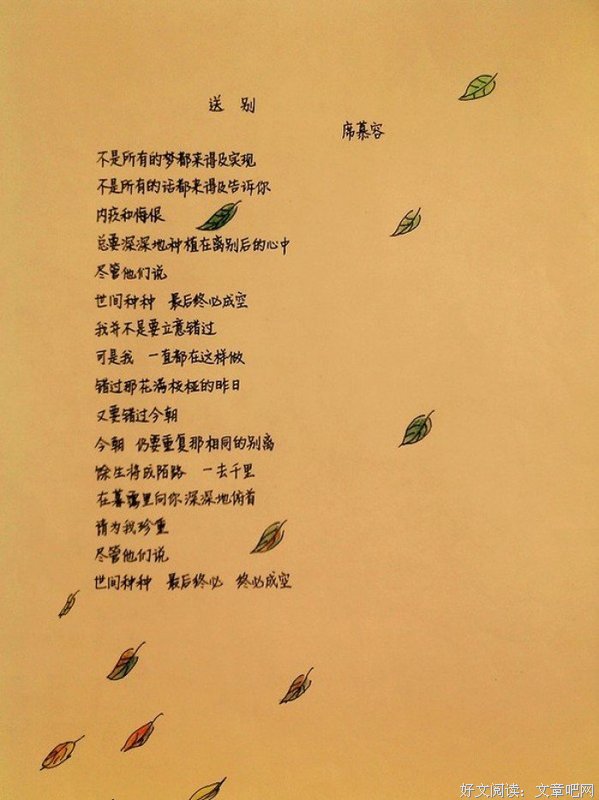 送 别
席慕容
不是所有的梦都来得及实现
不是所有的话都来得及告诉你
内疚和悔恨
总要深深地种植在离别后的心中
尽管他们说
世间种种 最后终必成空
我并不是要立意错过
可是我 一直都在这样做
错过那花满枝桠的昨日
又要错过今朝
今朝 仍要重复那相同的别离
馀生将成陌路 一去千里
在暮霭里向你深深地俯首
请为我珍重
尽管他们说
世间种种 最后终必 终必成空
好文阅读：文章吧网